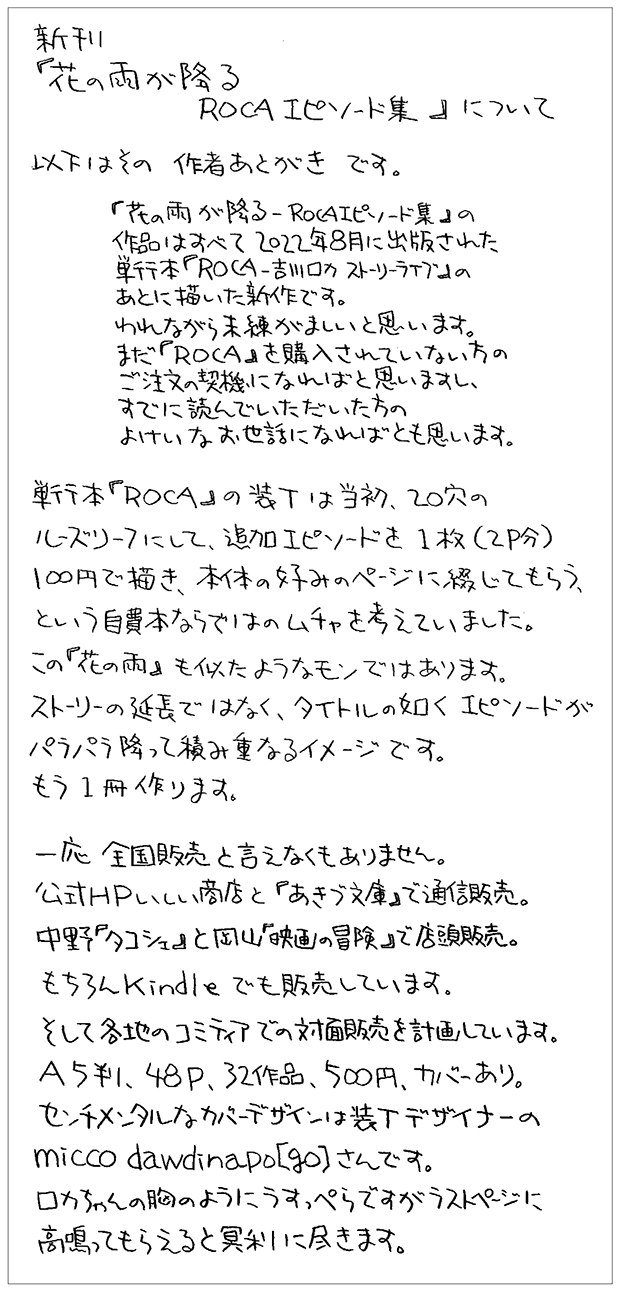 新刊
『花の雨が降る
ROCAエピソード集』について
以下はその 作者あとがき です。
『花の雨が降る-ROCAエピソード集』の
作品はすべて2022年8月に出版された
単行本『ROCA-吉川ロカ ストーリーライブ』の
あとに描いた新作です。
われながら未練がましいと思います。
まだ『ROCA』を購入されていない方の
ご注文の契機になればと思いますし、
すでに読んでいただいた方の
よけいなお世話になればとも思います。
単行本『ROCA』の装丁は当初、20穴の
ルーズリーフにして、追加エピソードを1枚(2P分)
100円で描き、本体の好みのページに綴じてもらう、
という自費本ならではのムチャを考えていました。
この『花の雨』も似たようなモンではあります。
ストーリーの延長ではなく、タイトルの如くエピソードが
パラパラ降って積み重なるイメージです。
もう1冊作ります。
一応 全国販売と言えなくもありません。
公式HPいしい商店と『あきづ文庫』で通信販売。
中野『タコシェ』と岡山『映画の冒険』で店頭販売。
もちろんKindleでも販売しています。
そして各地のコミティアでの対面販売を計画しています。
A5判、48P、32作品、500円、カバーあり。
センチメンタルなカバーデザインは装丁デザイナーの
micco dawdinapo[go]さんです。
ロカちゃんの胸のようにうすっぺらですがラストページに
高鳴ってもらえると冥利に尽きます。